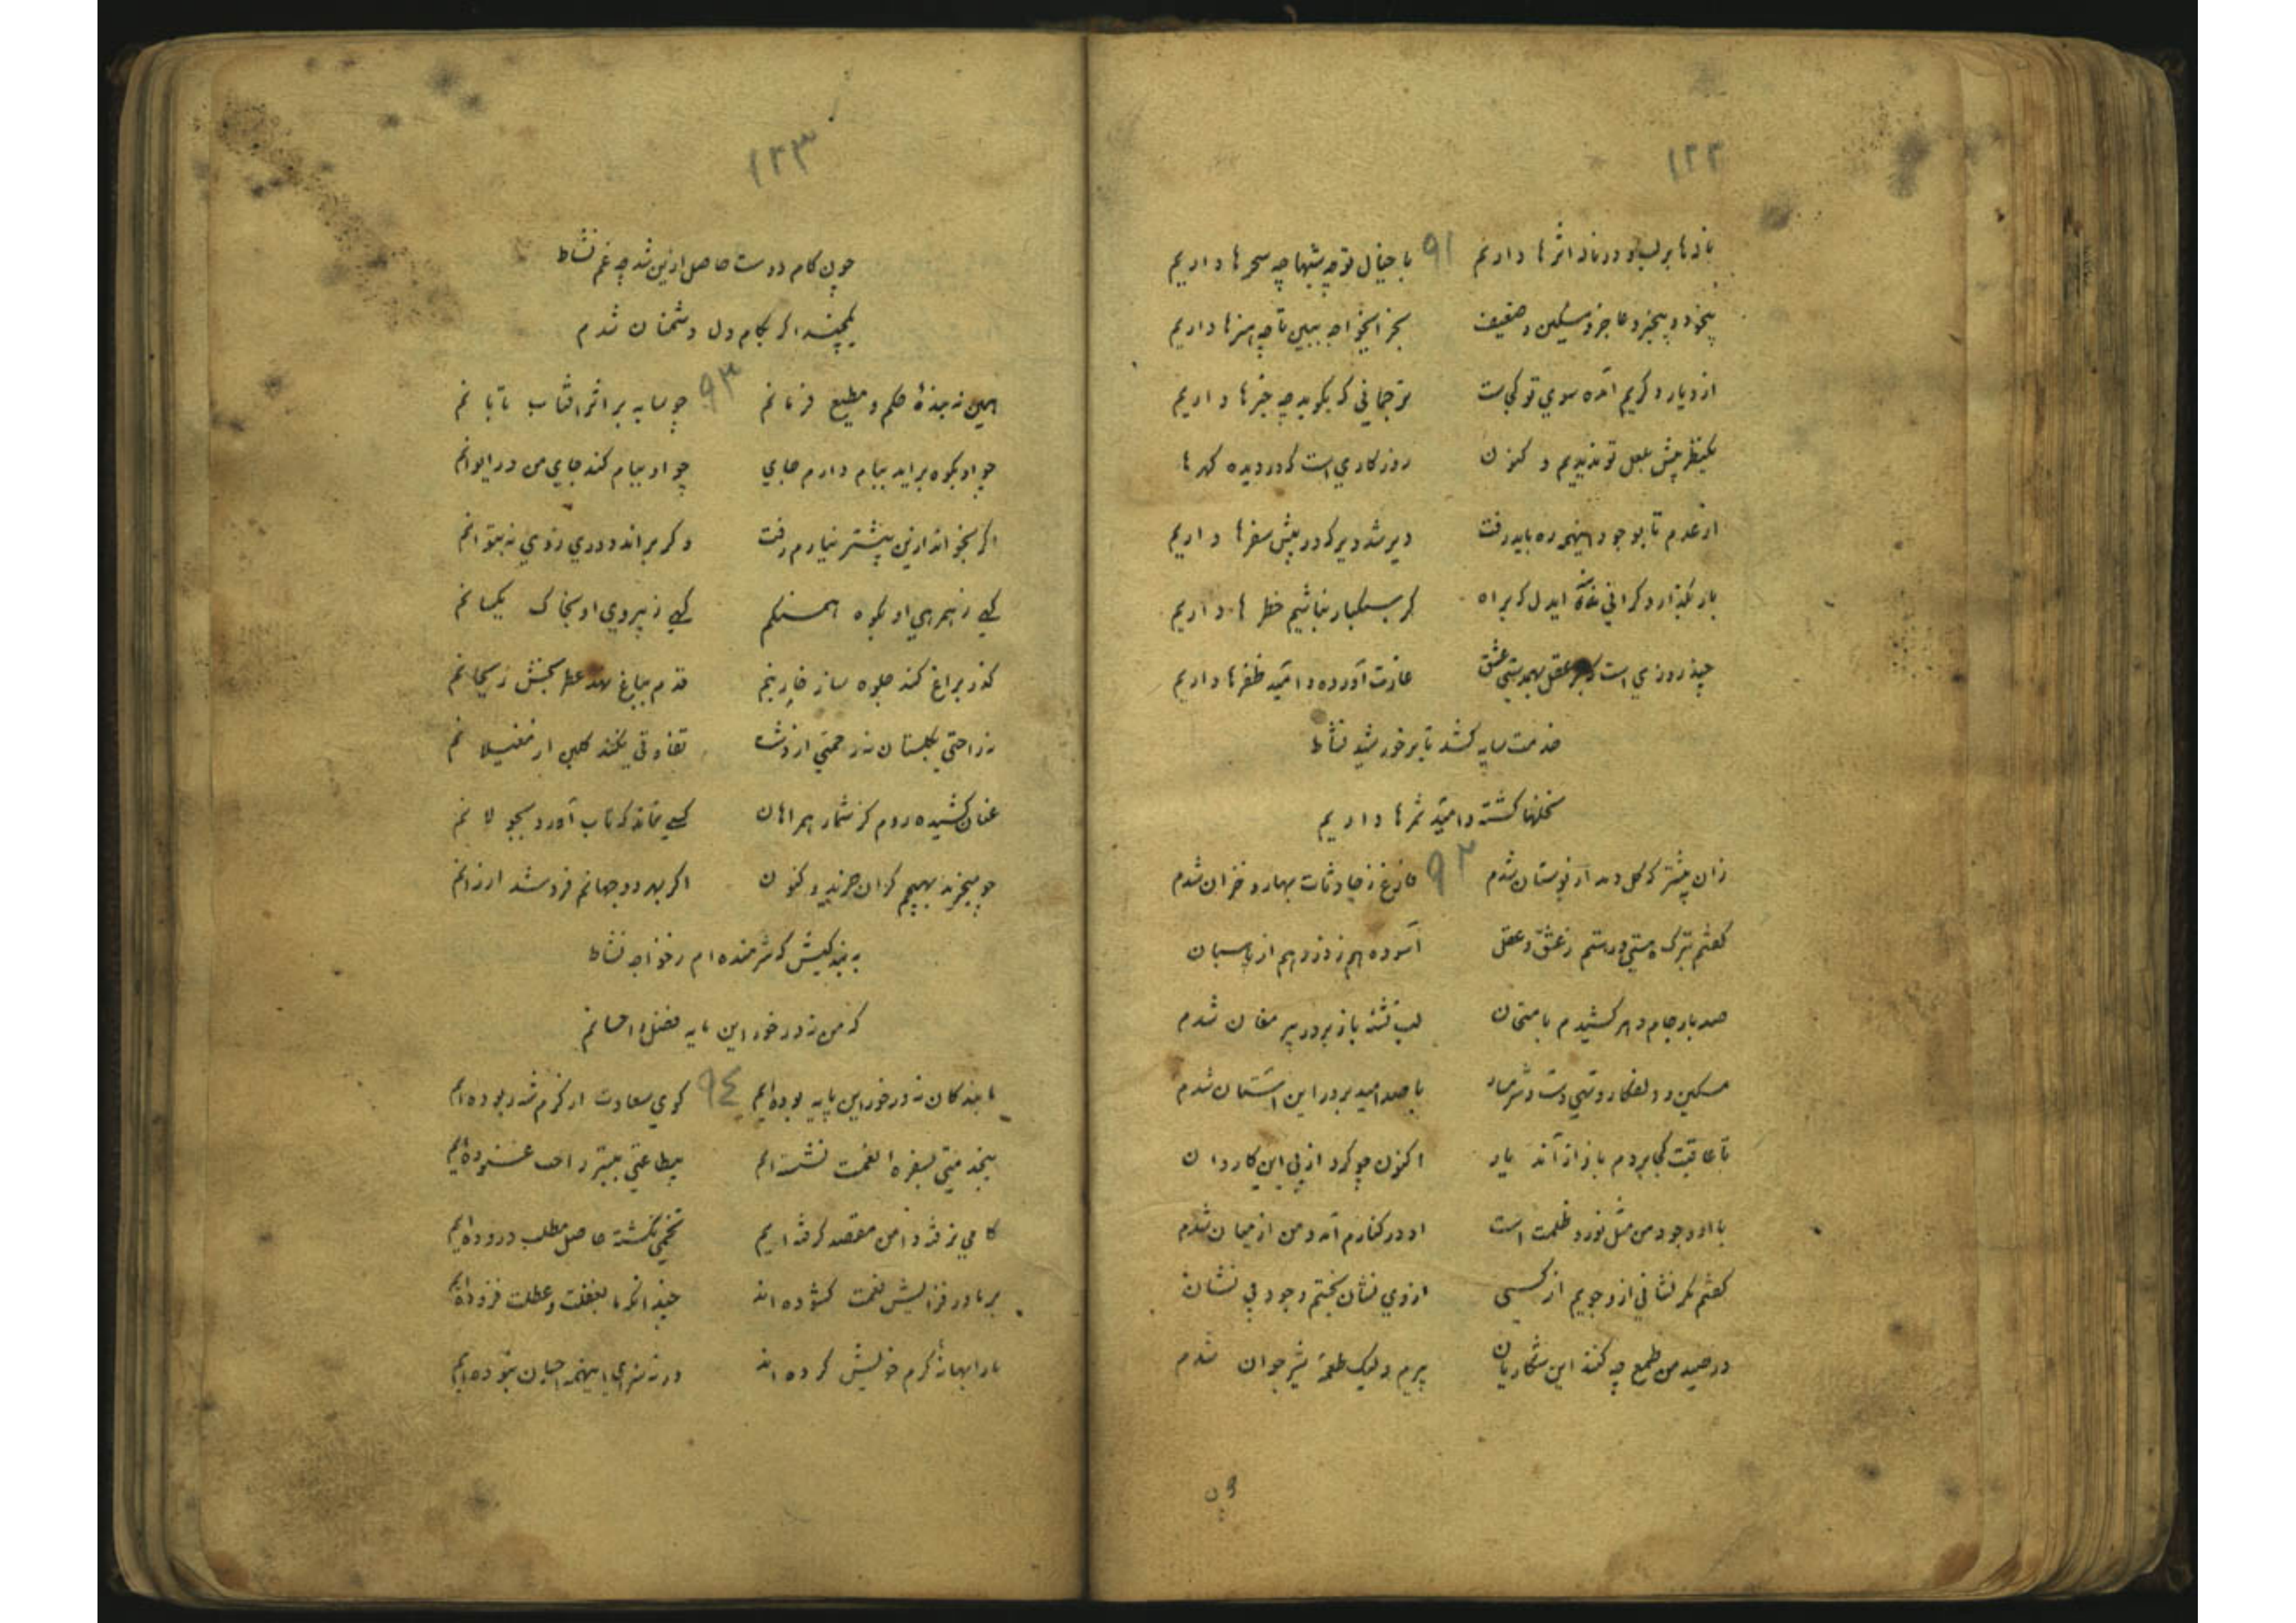 ۱۲۲
ناله‌ها بر لب و در ناله اثرها داریم ۹۱ با خیال تو چه شبها چه سحرها داریم
بیخود و بیخبر و عاجز و مسکین و ضعیف بخر ایخواجه ببین تا چه هنرها داریم
از دیار دگریم آمده سوی تو کجاست ترجمانی که بگوید چه خبرها داریم
یکنظر پیش بلعل تو ندیدیم و کنون روزگاری است که در دیده گهرها
از عدم تا بوجود اینهمه ره باید رفت دیر شد دیر که در پیش سفرها داریم
بار بگذار و گرانی منه ایدل که براه گر سبکبار نباشیم خطرها داریم
چند روزی است که بر عقل بهمدستی عشق غارت آورده و امید ظفرها داریم
خدمت سایه کشد تا بر خورشید نشاط
نخلها کشته و امید ثمرها داریم
زان پیشتر که گل دمد از بوستان شدم ۹۲ فارغ ز حادثات بهار و خزان شدم
گفتم بترک هستی و رستم ز عشق و عقل آسوده هم ز دزد و هم از پاسبان
صد بار جام دهر کشیدم بامتحان لب تشنه باز بر در پیر مغان شدم
مسکین و دلفکار و تهی دست و شرمسار با صد امید بر در این آستان شدم
تا عاقبت کجا بردم باز از آنه یار اکنون چو گرد از پی این کاروان
با او وجود من مثل نور و ظلمت است او در کنارم آمد و من از میان شدم
گفتم مگر نشانی ازو جویم از کسی از وی نشان نجستم و خود بی نشان
در صید من طمع چه کنند این شکاریان پیرم ولیک طعمه شیر جوان شدم
چون
۱۲۳
چون کام دوست حاصل ازین شد چه غم نشاط
یکچند اگر بکام دل دشمنان شدم
همین نه بنده حکم و مطیع فرمانم ۹۳ چو سایه بر اثر آفتاب تابانم
چو او بکوه برآید ببام دارم جای چو او ببام کند جای من در ایوانم
اگر بخواند ازین بیشتر نیارم رفت و گر براند دوری ز وی نه بتوانم
گهی ز همرهی او بکوه همسنگم گهی ز پیروی او بخاک یکسانم
گذر براغ کند جلوه ساز خار بنم قدم بباغ نهد عطر بخش ریحانم
نه راحتی بگلستان نه زحمتی از دشت تفاوتی نکند گلبن از مغیلانم
عنان کشیده روم کز شمار همراهان کسی نماند که تاب آورد بجولانم
چو میخرند بهیچم گران خرند و کنون اگر بهر دو جهانم فروشد ارزانم
به بندگیش که شرمنده ام ز خواجه نشاط
که من نه در خور این مایه فضل و احسانم
ما بندگان نه در خور این پایه بوده‌ایم ۹۴ گوی سعادت از کرم شه ربوده‌ایم
بیخدمتی بسفره نعمت نشسته‌ایم بیطاعتی ببستر راحت غنوده‌ایم
کامی نرفته دامن مقصد گرفته‌ایم تخمی نکشته حاصل مطلب دروده‌ایم
بر ما در فزایش نعمت گشوده‌اند چندانکه ما بغفلت و عطلت فزوده‌ایم
ما را بهانه کرم خویش کرده‌اند ورنه سزای اینهمه احسان نبوده‌ایم